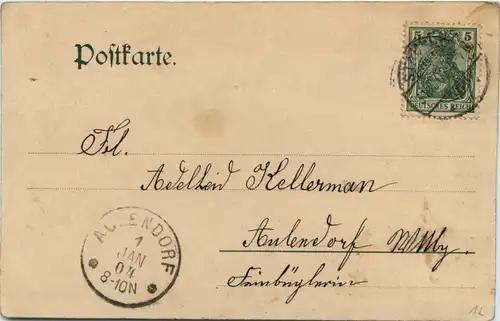 Postkarte.
5 5
DEUTSCHES REICH
Frl.
Adelheid Kellerman
Aulendorf Wttbg.
Feinbüglerin
AULENDORF
1
JAN
04
8-10N
12